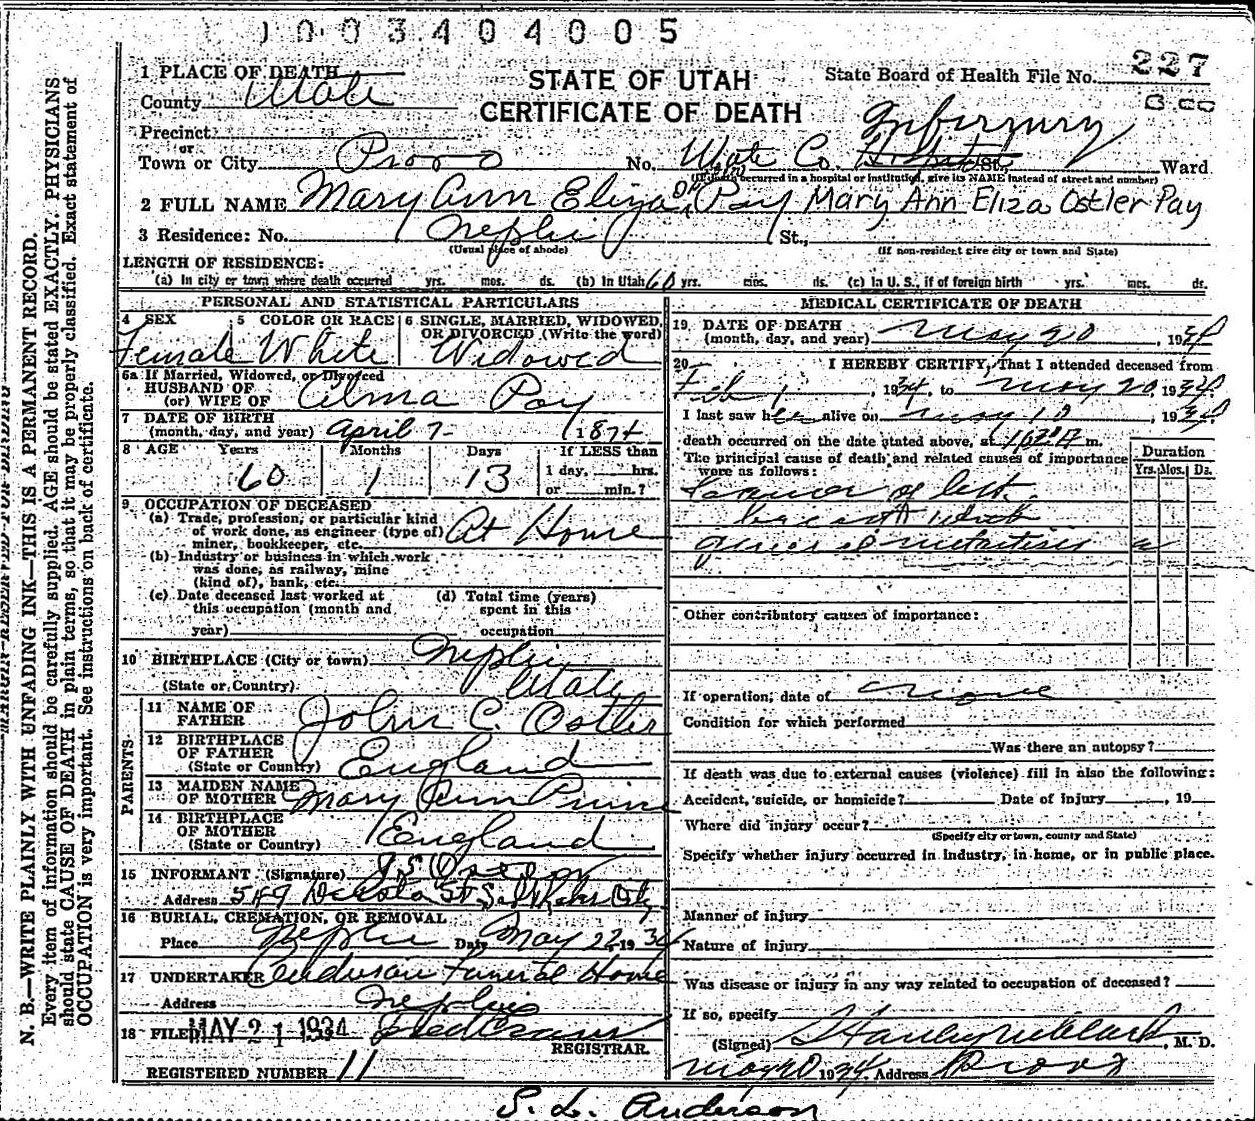 1003404005
227
STATE OF UTAH
CERTIFICATE OF DEATH
State Board of Health File No.
1 PLACE OF DEATH
County Utah
Precinct
or
Town or City Provo No. Utah Co. Infirmary St., Ward
(If death occurred in a hospital or institution, give its NAME instead of street and number)
2 FULL NAME Mary Ann Eliza Pay Mary Ann Eliza Ostler Pay
3 Residence: No. Nephi St.,
(Usual place of abode) (If non-resident give city or town and State)
LENGTH OF RESIDENCE:
(a) In city or town where death occurred yrs. mos. ds. (b) In Utah 60 yrs. mos. ds. (c) In U. S., if of foreign birth yrs. mos. ds.
PERSONAL AND STATISTICAL PARTICULARS
4 SEX 5 COLOR OR RACE 6 SINGLE, MARRIED, WIDOWED,
OR DIVORCED (Write the word)
Female White Widowed
6a If Married, Widowed, or Divorced
HUSBAND OF
(or) WIFE OF Alma Pay
7 DATE OF BIRTH
(month, day, and year) April 7- 1874
8 AGE Years Months Days If LESS than
60 1 13 1 day, hrs.
or min.?
9 OCCUPATION OF DECEASED
(a) Trade, profession, or particular kind
of work done, as engineer (type of) At Home
miner, bookkeeper, etc.
(b) Industry or business in which work
was done, as railway, mine
(kind of), bank, etc.
(c) Date deceased last worked at (d) Total time (years)
this occupation (month and spent in this
year) occupation
10 BIRTHPLACE (City or town) Nephi
(State or Country) Utah
PARENTS
11 NAME OF
FATHER John C. Ostler
12 BIRTHPLACE
OF FATHER
(State or Country) England
13 MAIDEN NAME
OF MOTHER Mary Ann Prince
14 BIRTHPLACE
OF MOTHER
(State or Country) England
15 INFORMANT (Signature)
Address 549 Dakota St Salt Lake City
16 BURIAL, CREMATION, OR REMOVAL
Place Nephi Date May 22 1934
17 UNDERTAKER Anderson Funeral Home
Address Nephi
18 FILED MAY 21 1934
REGISTRAR
REGISTERED NUMBER 11
MEDICAL CERTIFICATE OF DEATH
19. DATE OF DEATH
(month, day, and year) May 20, 1934
20 I HEREBY CERTIFY, That I attended deceased from
Feb 1, 1934, to May 20, 1934
I last saw her alive on May 19 1934
death occurred on the date stated above, at m.
The principal cause of death and related causes of importance
were as follows:
Duration
Yrs. Mos. Ds.
Cancer of left
breast with
general metastases
Other contributory causes of importance:
If operation, date of None
Condition for which performed
Was there an autopsy?
If death was due to external causes (violence) fill in also the following:
Accident, suicide, or homicide? Date of injury , 19
Where did injury occur?
(Specify city or town, county and State)
Specify whether injury occurred in industry, in home, or in public place.
Manner of injury
Nature of injury
Was disease or injury in any way related to occupation of deceased?
If so, specify
(Signed) , M. D.
May 20 1934 Address Provo
S. L. Anderson
MARGIN RESERVED FOR BINDING
N. B.—WRITE PLAINLY WITH UNFADING INK—THIS IS A PERMANENT RECORD.
Every item of information should be carefully supplied. AGE should be stated EXACTLY. PHYSICIANS
should state CAUSE OF DEATH in plain terms, so that it may be properly classified. Exact statement of
OCCUPATION is very important. See instructions on back of certificate.